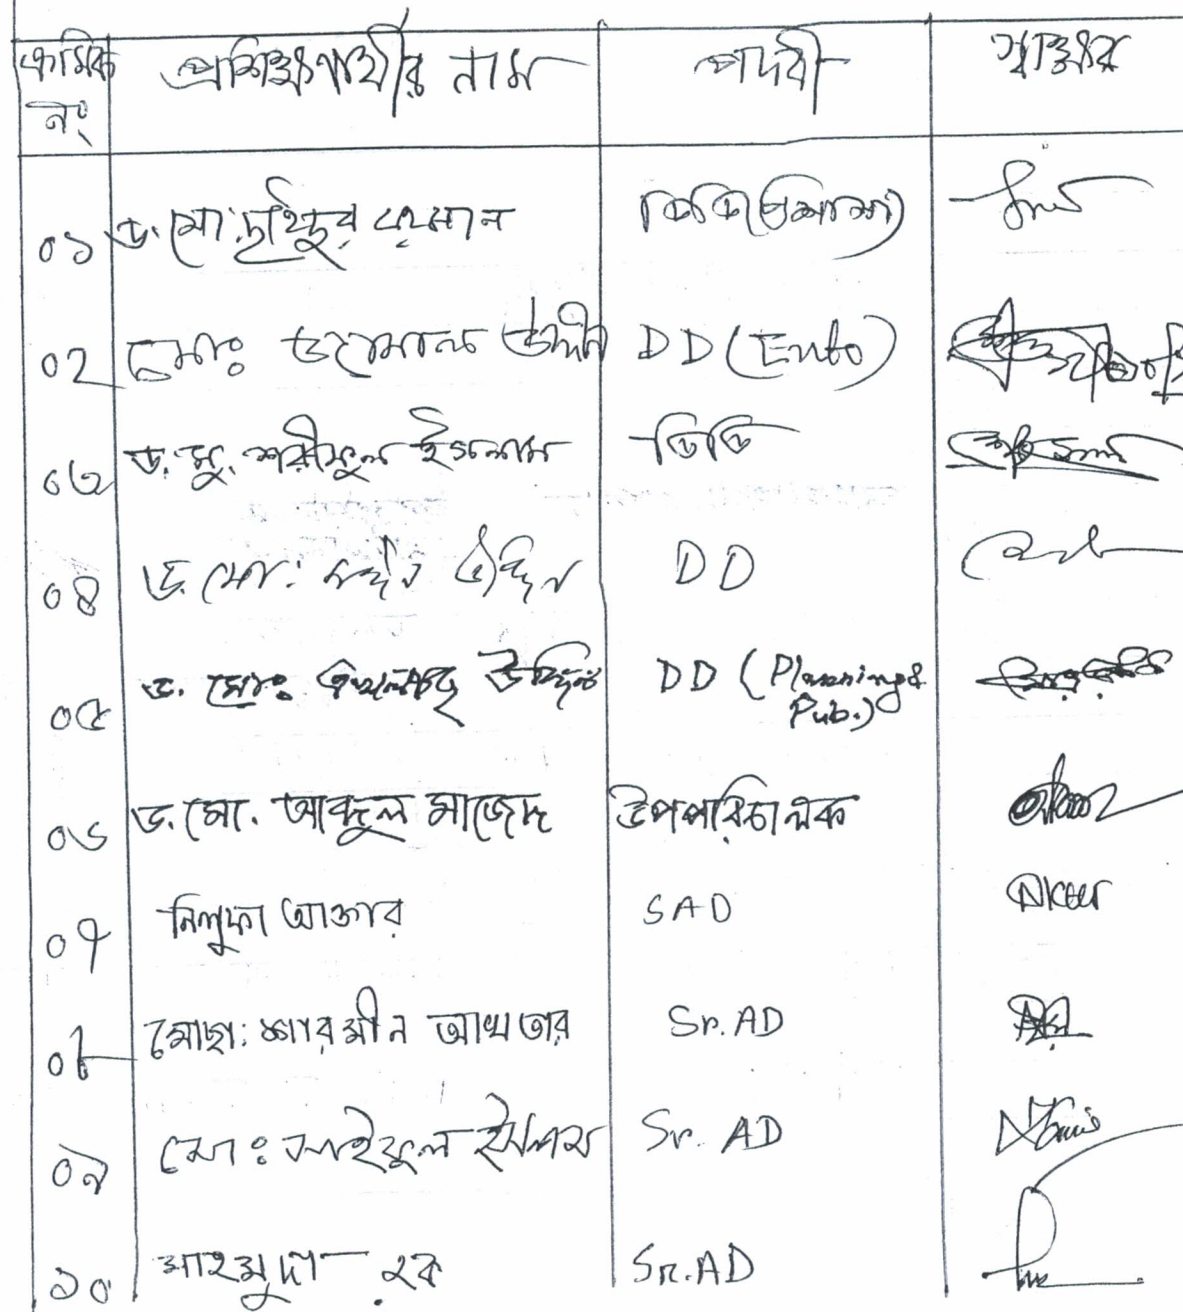 ক্রমিক নং প্রশিক্ষণার্থীর নাম পদবী স্বাক্ষর
০১ ড. মো. রহমান
০২ মোঃ উদ্দীন DD (Ento)
০৩ ড. মু. শরীফুল ইসলাম ডিডি
০৪ ড. মো: উদ্দিন DD
০৫ ড. মোঃ উদ্দিন DD (Planning & Pub.)
০৬ ড. মো. আব্দুল মাজেদ উপপরিচালক
০৭ নিলুফা আক্তার SAD Akter
০৮ মোছা: শারমীন আখতার Sr. AD
০৯ মোঃ সাইফুল ইসলাম Sr. AD
১০ মাহমুদা হক Sr. AD